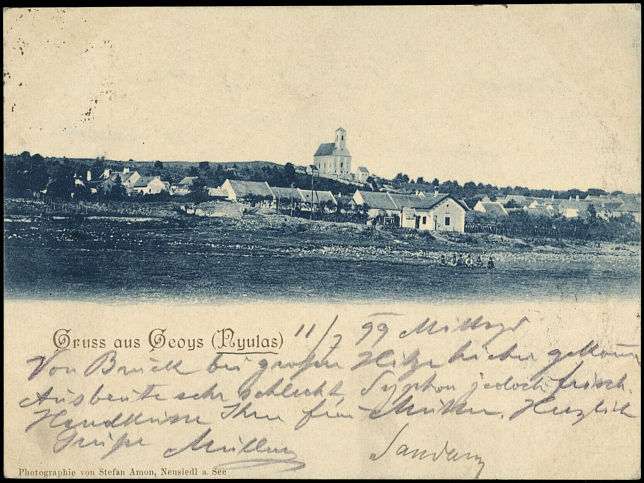 Gruss aus Geoys (Nyulas) 11/7 99 Mittags
Von Bruck bei großer Hitze hieher gekom
Ausbeute sehr schlecht, Syphon jedoch frisch.
Handküsse Ihrer Frau Mutter, Herzlich
Grüße Müllner
Photographie von Stefan Amon, Neusiedl a. See